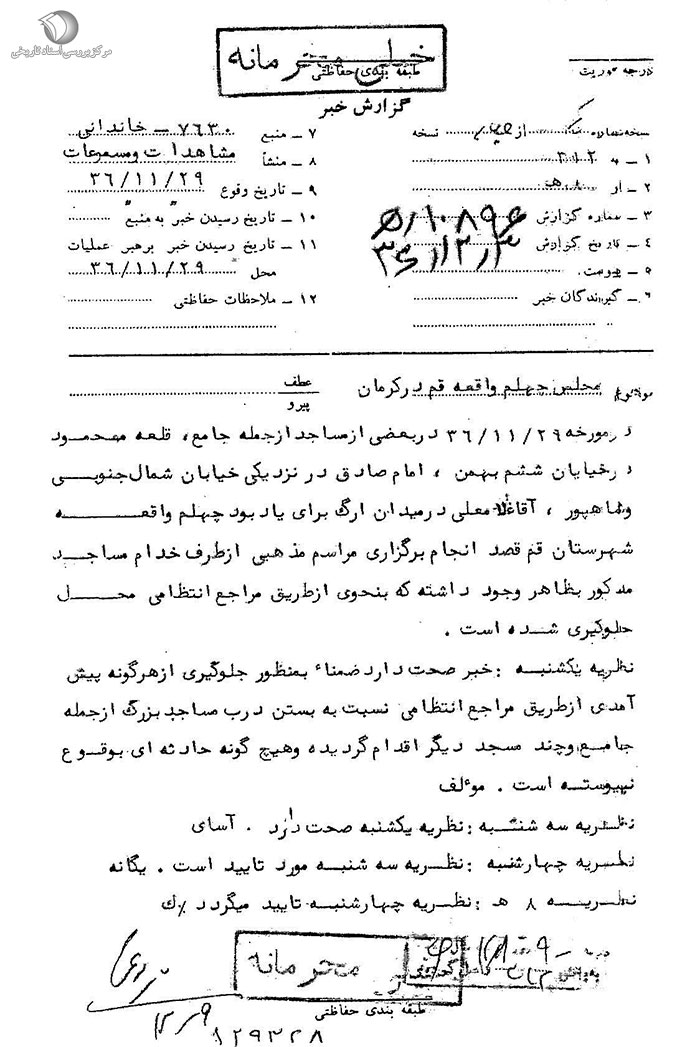 مرکز بررسی اسناد تاریخی
خیلی محرمانه
طبقه بندی حفاظتی
درجه فوریت
گزارش خبر
نسخه شماره از نسخه
۱ ــ به ۳۱۲
۲ ــ از ۸ هـ
۳ ــ شماره گزارش ۱۰۸۹۶/ه
۴ ــ تاریخ گزارش ۳۶/۱۲/۳
۵ ــ پیوست
۶ ــ گیرندگان خبر
۷ ــ منبع ۷۶۳۰ ــ خاندانی
۸ ــ منشأ مشاهدات و مسموعات
۹ ــ تاریخ وقوع ۳۶/۱۱/۲۹
۱۰ ــ تاریخ رسیدن خبر به منبع "
۱۱ ــ تاریخ رسیدن خبر برهبر عملیات
محل ۳۶/۱۱/۲۹
۱۲ ــ ملاحظات حفاظتی
موضوع مجلس چهلم واقعه قم در کرمان
عطف
پیرو
در مورخه ۳۶/۱۱/۲۹ در بعضی از مساجد ازجمله جامع، قلعه محمود
در خیابان ششم بهمن ، امام صادق در نزدیکی خیابان شمال جنوبی
و شاهپور ، آقا غلامعلی در میدان ارگ برای یاد بود چهلم واقعه
شهرستان قم قصد انجام برگزاری مراسم مذهبی از طرف خدام مساجد
مذکور بظاهر وجود داشته که بنحوی از طریق مراجع انتظامی محل
جلوگیری شده است .
نظریه یکشنبه : خبر صحت دارد ضمناً بمنظور جلوگیری از هرگونه پیش
آمدی از طریق مراجع انتظامی نسبت به بستن درب مساجد بزرگ ازجمله
جامع و چند مسجد دیگر اقدام گردیده و هیچ گونه حادثه ای بوقوع
نپیوسته است . موءلف
نظریه سه شنبه : نظریه یکشنبه صحت دارد . آسای
نظریه چهارشنبه : نظریه سه شنبه مورد تایید است . یگانه
نظریه ۸ هـ : نظریه چهارشنبه تایید میگردد
محرمانه
طبقه بندی حفاظتی
۱۲ ــ ۹
۱۲۹۳۲۸